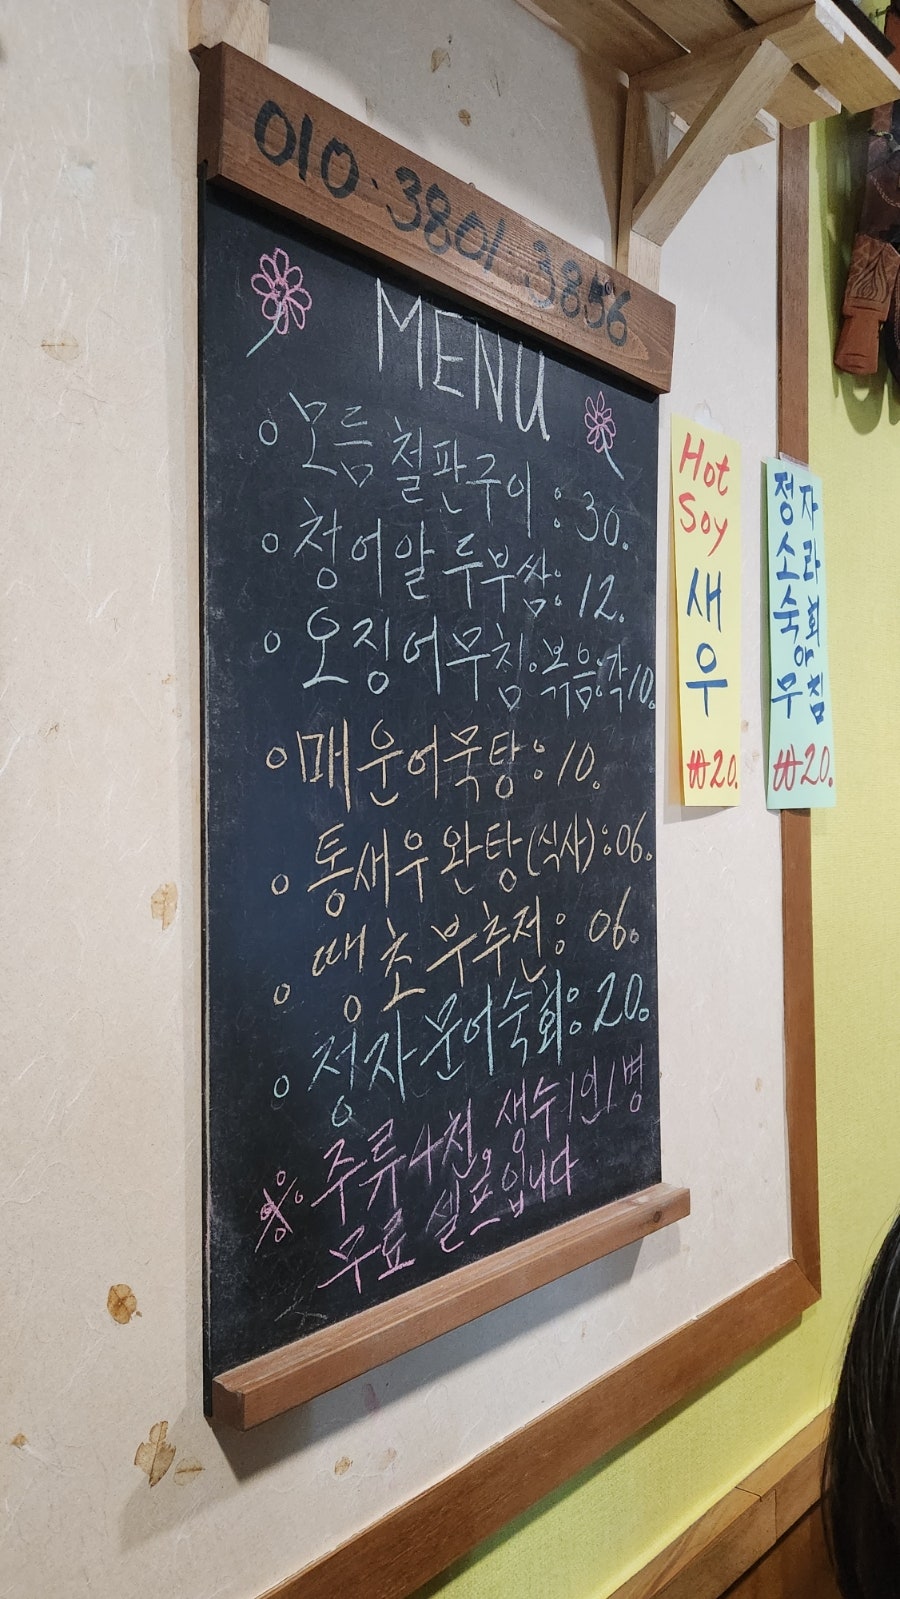 010.3801.3856
MENU
모듬철판구이:30.
청어알두부쌈:12.
오징어무침·볶음:각10.
매운어묵탕:10.
통새우완탕(식사):06.
땡초부추전:06.
정자문어숙회:20.
※주류4천 생수1인1병
무료 셀프입니다
Hot
Soy
새
우
₩20.
정자
소라
숙회
무침
₩20.